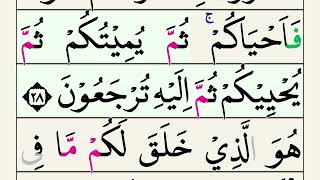 فَاَحْيَاكُمْ ۚ ثُمَّ يُمِيْتُكُمْ ثُمَّ
يُحْيِيْكُمْ ثُمَّ اِلَيْهِ تُرْجَعُوْنَ ﴿٢٨﴾
هُوَ الَّذِيْ خَلَقَ لَكُمْ مَّا فِى